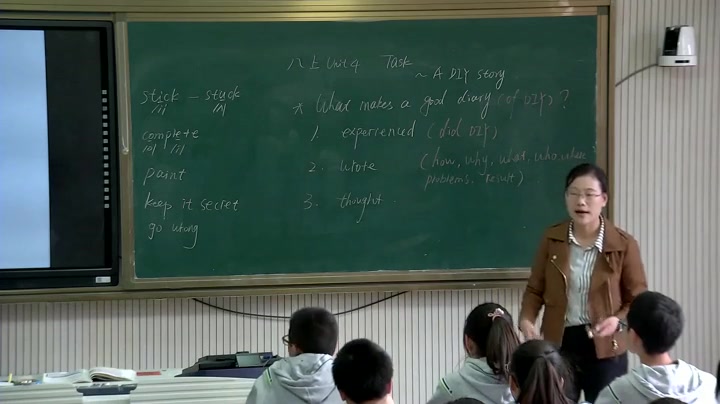 八上 Unit 4 Task
~ A DIY story
stick - stuck
/ɪ/ /ʌ/
complete
/ə/ /iː/
paint
keep it secret
go wrong
* What makes a good diary (of DIY)?
1. experienced (did DIY)
2. wrote (how, why, what, who, where
problems. ~ result)
3. thought